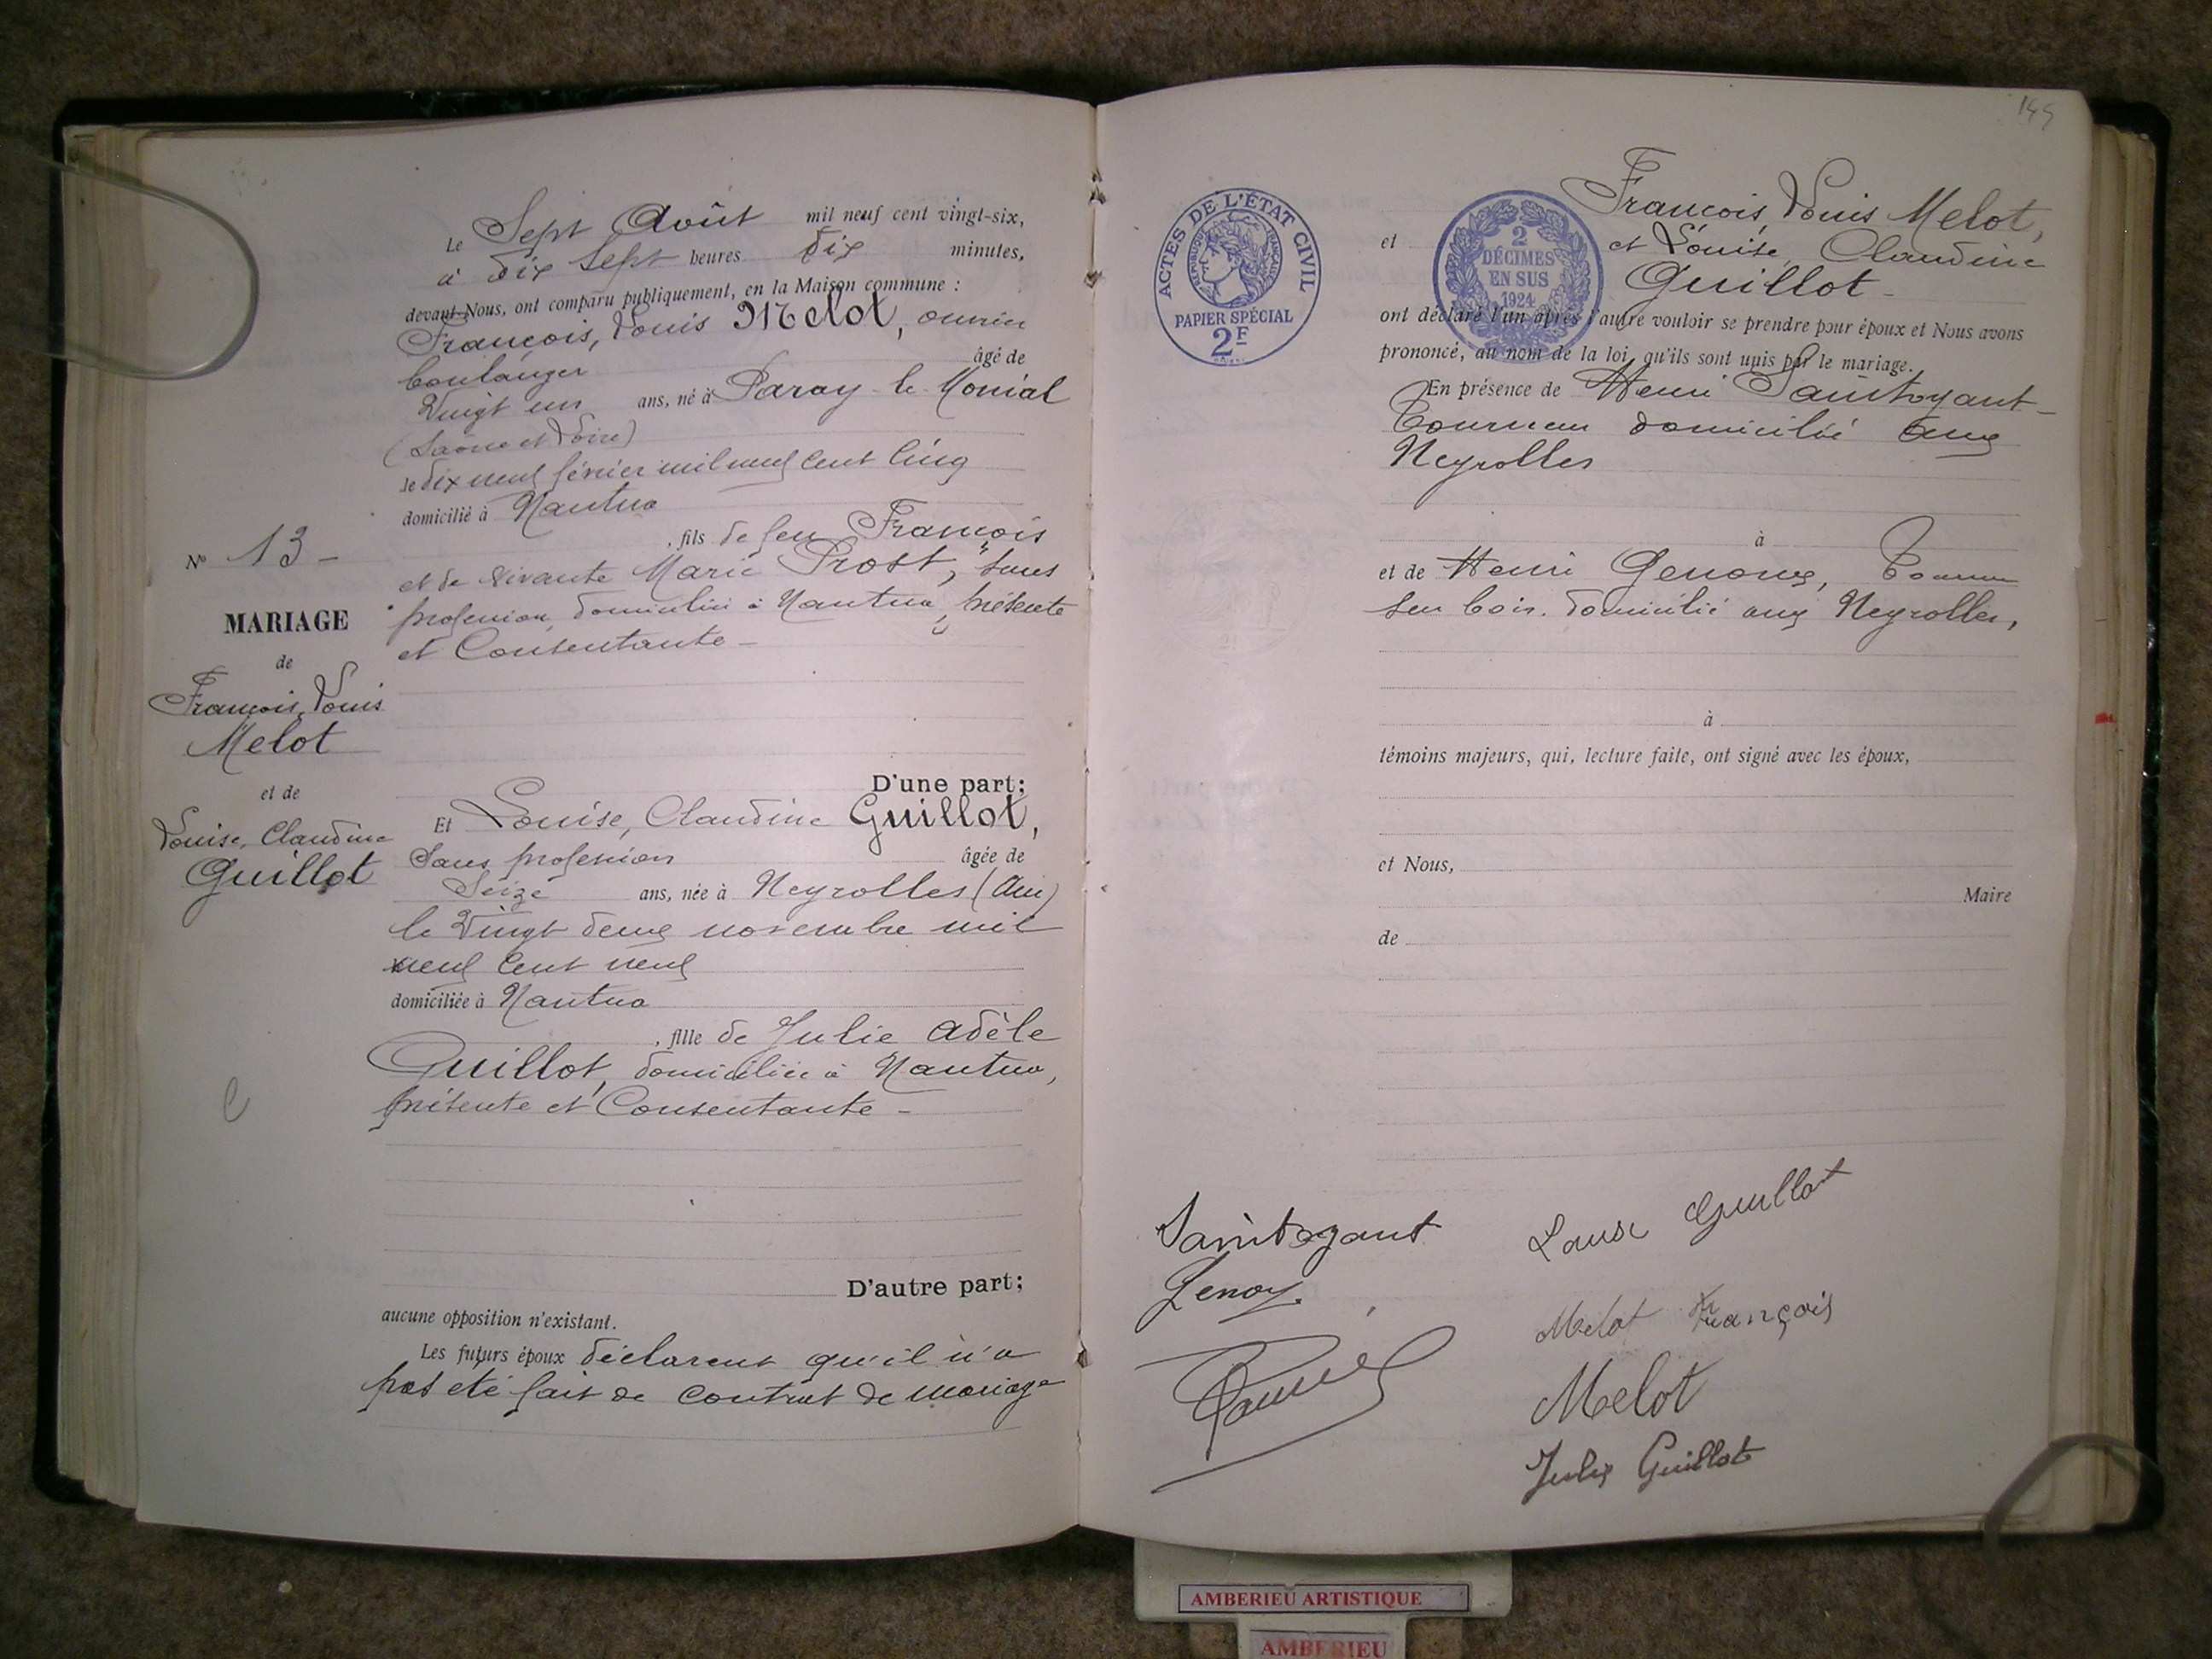 Le Sept Août mil neuf cent vingt-six,
à dix Sept heures dix minutes,
devant Nous, ont comparu publiquement, en la Maison commune :
François, Louis Melot, ouvrier
boulanger âgé de
Vingt un ans, né à Paray le Monial
(Saône et Loire)
le dix neuf février mil neuf cent cinq
domicilié à Nantua
, fils de feu François
et de vivante Marie Prost, sans
profession, domiciliée à Nantua, présente
et Consentante -
N° 13 -
MARIAGE
de
François, Louis
Melot
et de
Louise, Claudine
Guillot
D'une part;
Et Louise, Claudine Guillot,
Sans profession âgée de
Seize ans, née à Neyrolles (Ain)
le Vingt deux novembre mil
neuf Cent neuf
domiciliée à Nantua
, fille de Julie Adèle
Guillot, domiciliée à Nantua,
présente et Consentante -
D'autre part;
aucune opposition n'existant.
Les futurs époux déclarent qu'il n'a
pas eté fait de contrat de mariage
145
ACTES DE L'ÉTAT CIVIL
RÉPUBLIQUE FRANÇAISE
PAPIER SPÉCIAL
2F
2
DÉCIMES
EN SUS
1924
François, Louis Melot,
et et Louise, Claudine
Guillot -
ont déclaré l'un après l'autre vouloir se prendre pour époux et Nous avons
prononcé, au nom de la loi, qu'ils sont unis par le mariage.
En présence de Henri Saintoyant
Tourneur domicilié aux
Neyrolles
à
et de Henri Genoux, Tourneur
sur bois. domicilié aux Neyrolles,
à
témoins majeurs, qui, lecture faite, ont signé avec les époux,
et Nous,
Maire
de
Saintoyant
Louise Guillot
Genoux
Melot François
Melot
Julie Guillot
AMBERIEU ARTISTIQUE
AMBERIEU